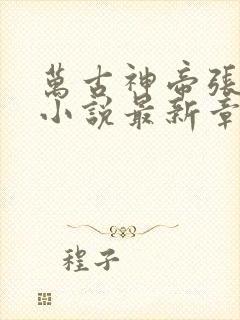 萬古神帝張
小說最新章
程子